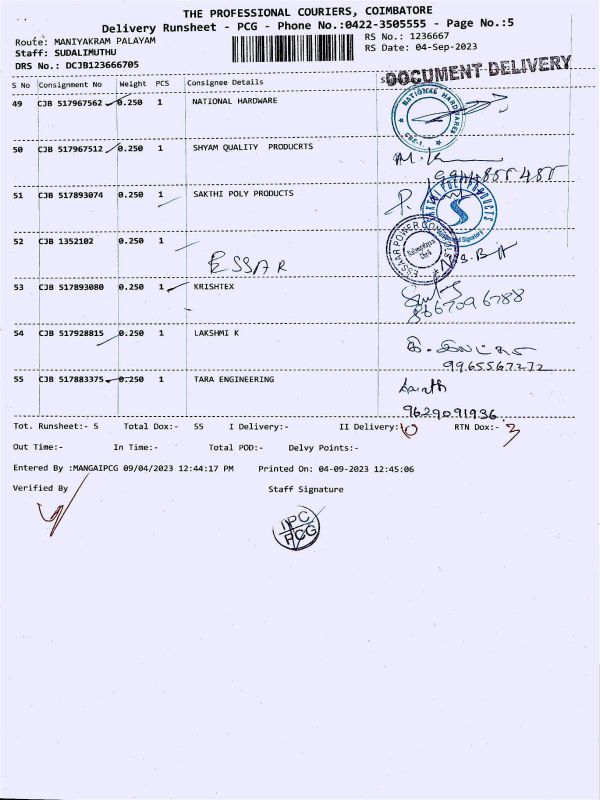 THE PROFESSIONAL COURIERS, COIMBATORE
Delivery Runsheet - PCG - Phone No.:0422-3505555 - Page No.:5
Route: MANIYAKRAM PALAYAM
RS No.: 1236667
Staff: SUDALIMUTHU
RS Date: 04-Sep-2023
DRS No.: DCJB123666705
DOCUMENT DELIVERY
S No Consignment No Weight PCS Consignee Details
49 CJB 517967562 0.250 1 NATIONAL HARDWARE
NATIONAL HARDWARES
50 CJB 517967512 0.250 1 SHYAM QUALITY PRODUCRTS
M.K
9944855485
51 CJB 517893074 0.250 1 SAKTHI POLY PRODUCTS
SAKTHI POLY PRODUCTS
52 CJB 1352102 0.250 1
ESSAR
53 CJB 517893080 0.250 1 KRISHTEX
8667096788
54 CJB 517928815 0.250 1 LAKSHMI K
9965567272
55 CJB 517883375 0.250 1 TARA ENGINEERING
Sarath
9629091936
Tot. Runsheet:- 5 Total Dox:- 55 I Delivery:- II Delivery: RTN Dox:- 3
Out Time:- In Time:- Total POD:- Delvy Points:-
Entered By :MANGAIPCG 09/04/2023 12:44:17 PM Printed On: 04-09-2023 12:45:06
Verified By Staff Signature
TPC
PCG